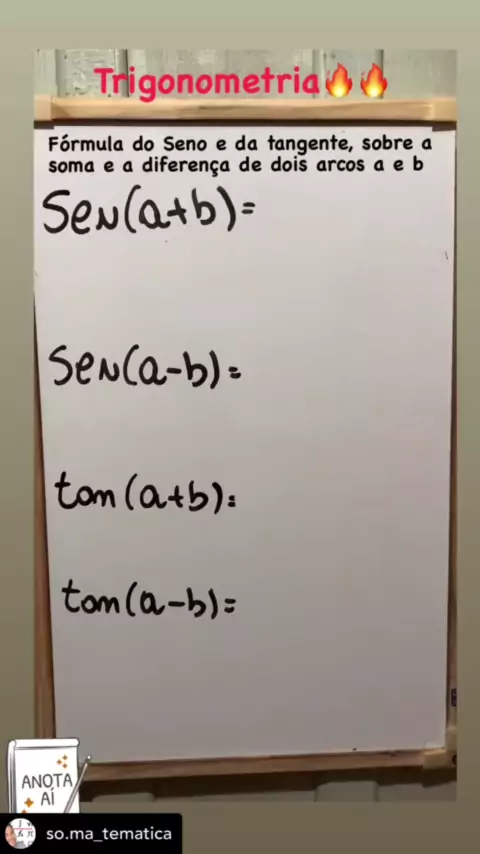 Trigonometria🔥🔥
Fórmula do Seno e da tangente, sobre a
soma e a diferença de dois arcos a e b
Sen(a+b)=
Sen(a-b)=
tan(a+b)=
tan(a-b)=
ANOTA
AÍ
so.ma_tematica